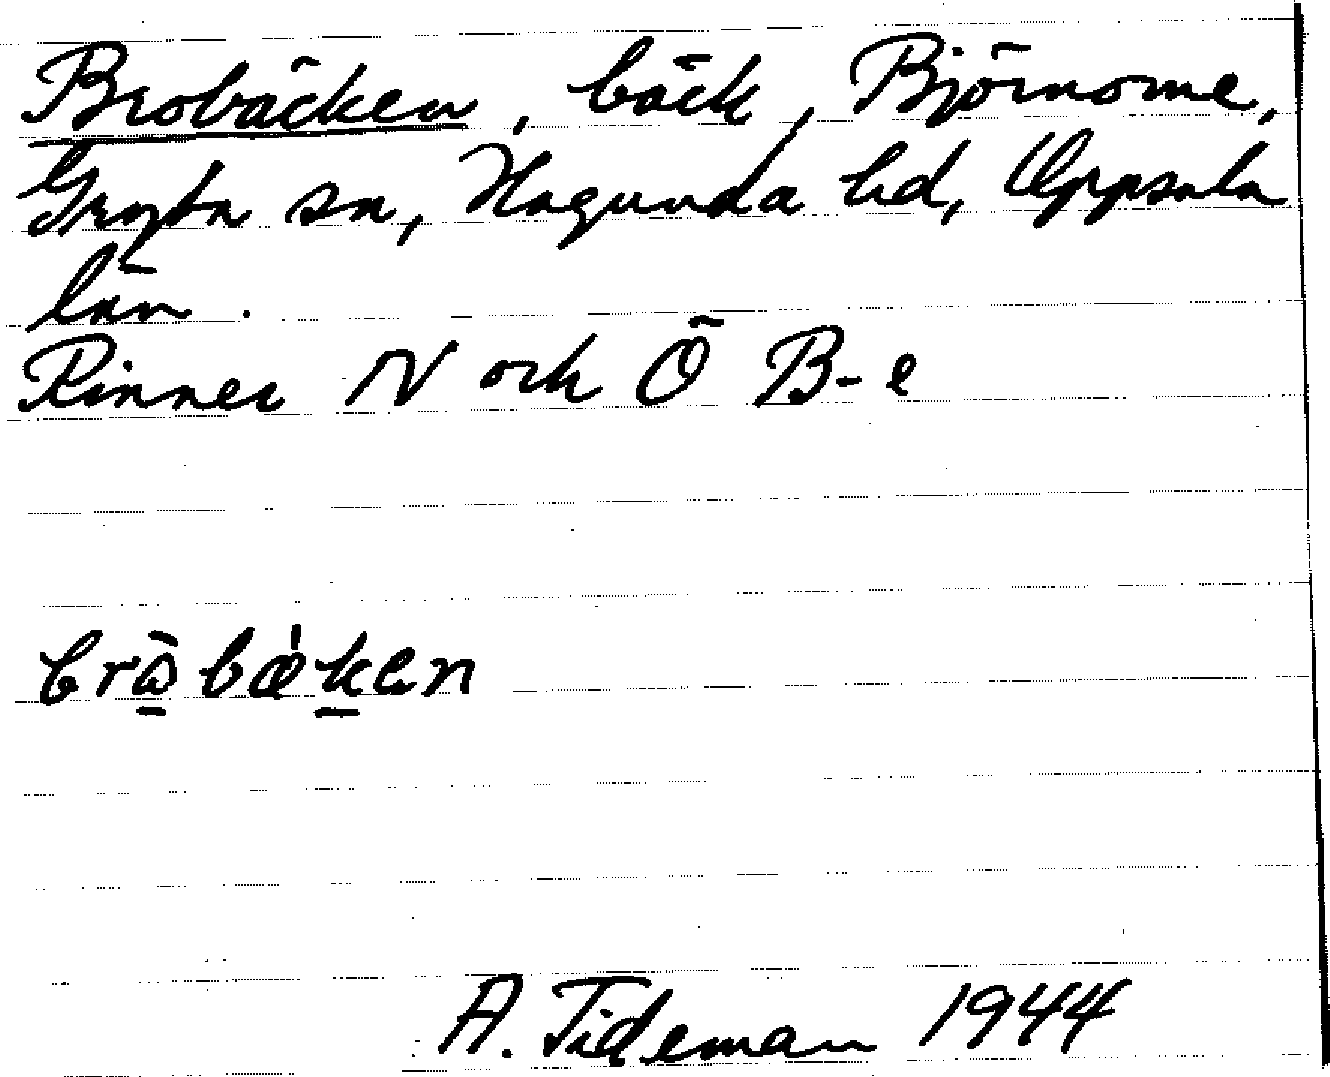 Brobäcken, bäck, Björnome,
Gryta sn, Hagunda hd, Uppsala
län.
Rinner N och Ö B-e
bròbæ̀ken
A. Tideman 1944